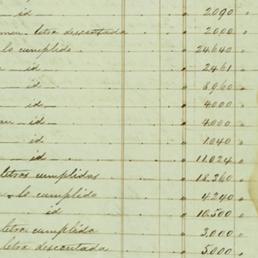 id " 2090 "
letra descontada " 2000 "
lo cumplido " 24.640 "
id " 2461 "
id " 8.960 "
id " 4000 "
id " 4000 "
id " 1.040 "
id " 11.024 "
letras cumplidas " 18.260 "
lo cumplido " 4.240 "
id " 10.500 "
letra cumplida " 3.000 "
letra descontada " 5.000 "